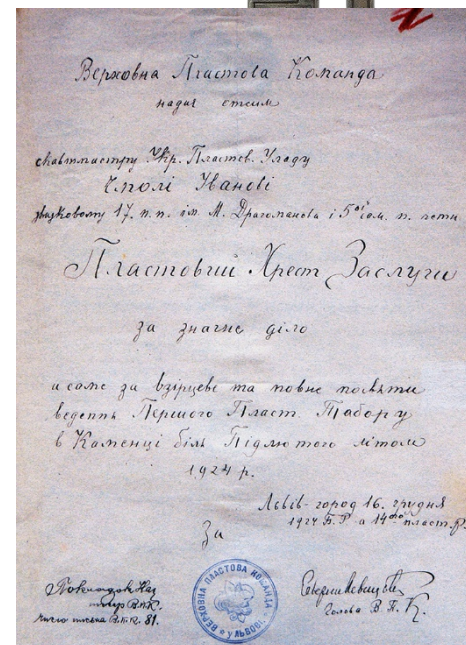 Верховна Пластова Команда
надає отсим
скавтмастру Укр. Пластов. Уладу
Чмолі Іванові
звязковому 17. п. п. ім. М. Драгоманова і 5ої ом. п. сотні
Пластовий Хрест Заслуги
за значне діло
а саме за взірцеве та повне посвяти
веденнє Першого Пласт. Табору
в Каменці біля Підлютого літом
1924 р.
Львів-город 16. грудня
1924 Б. Р. а 14ого пласт. р.
За
ВЕРХОВНА ПЛАСТОВА КОМАНДА
у ЛЬВОВІ
В.П.К.
Голова В. П. К.
число письма В.П.К. 81.